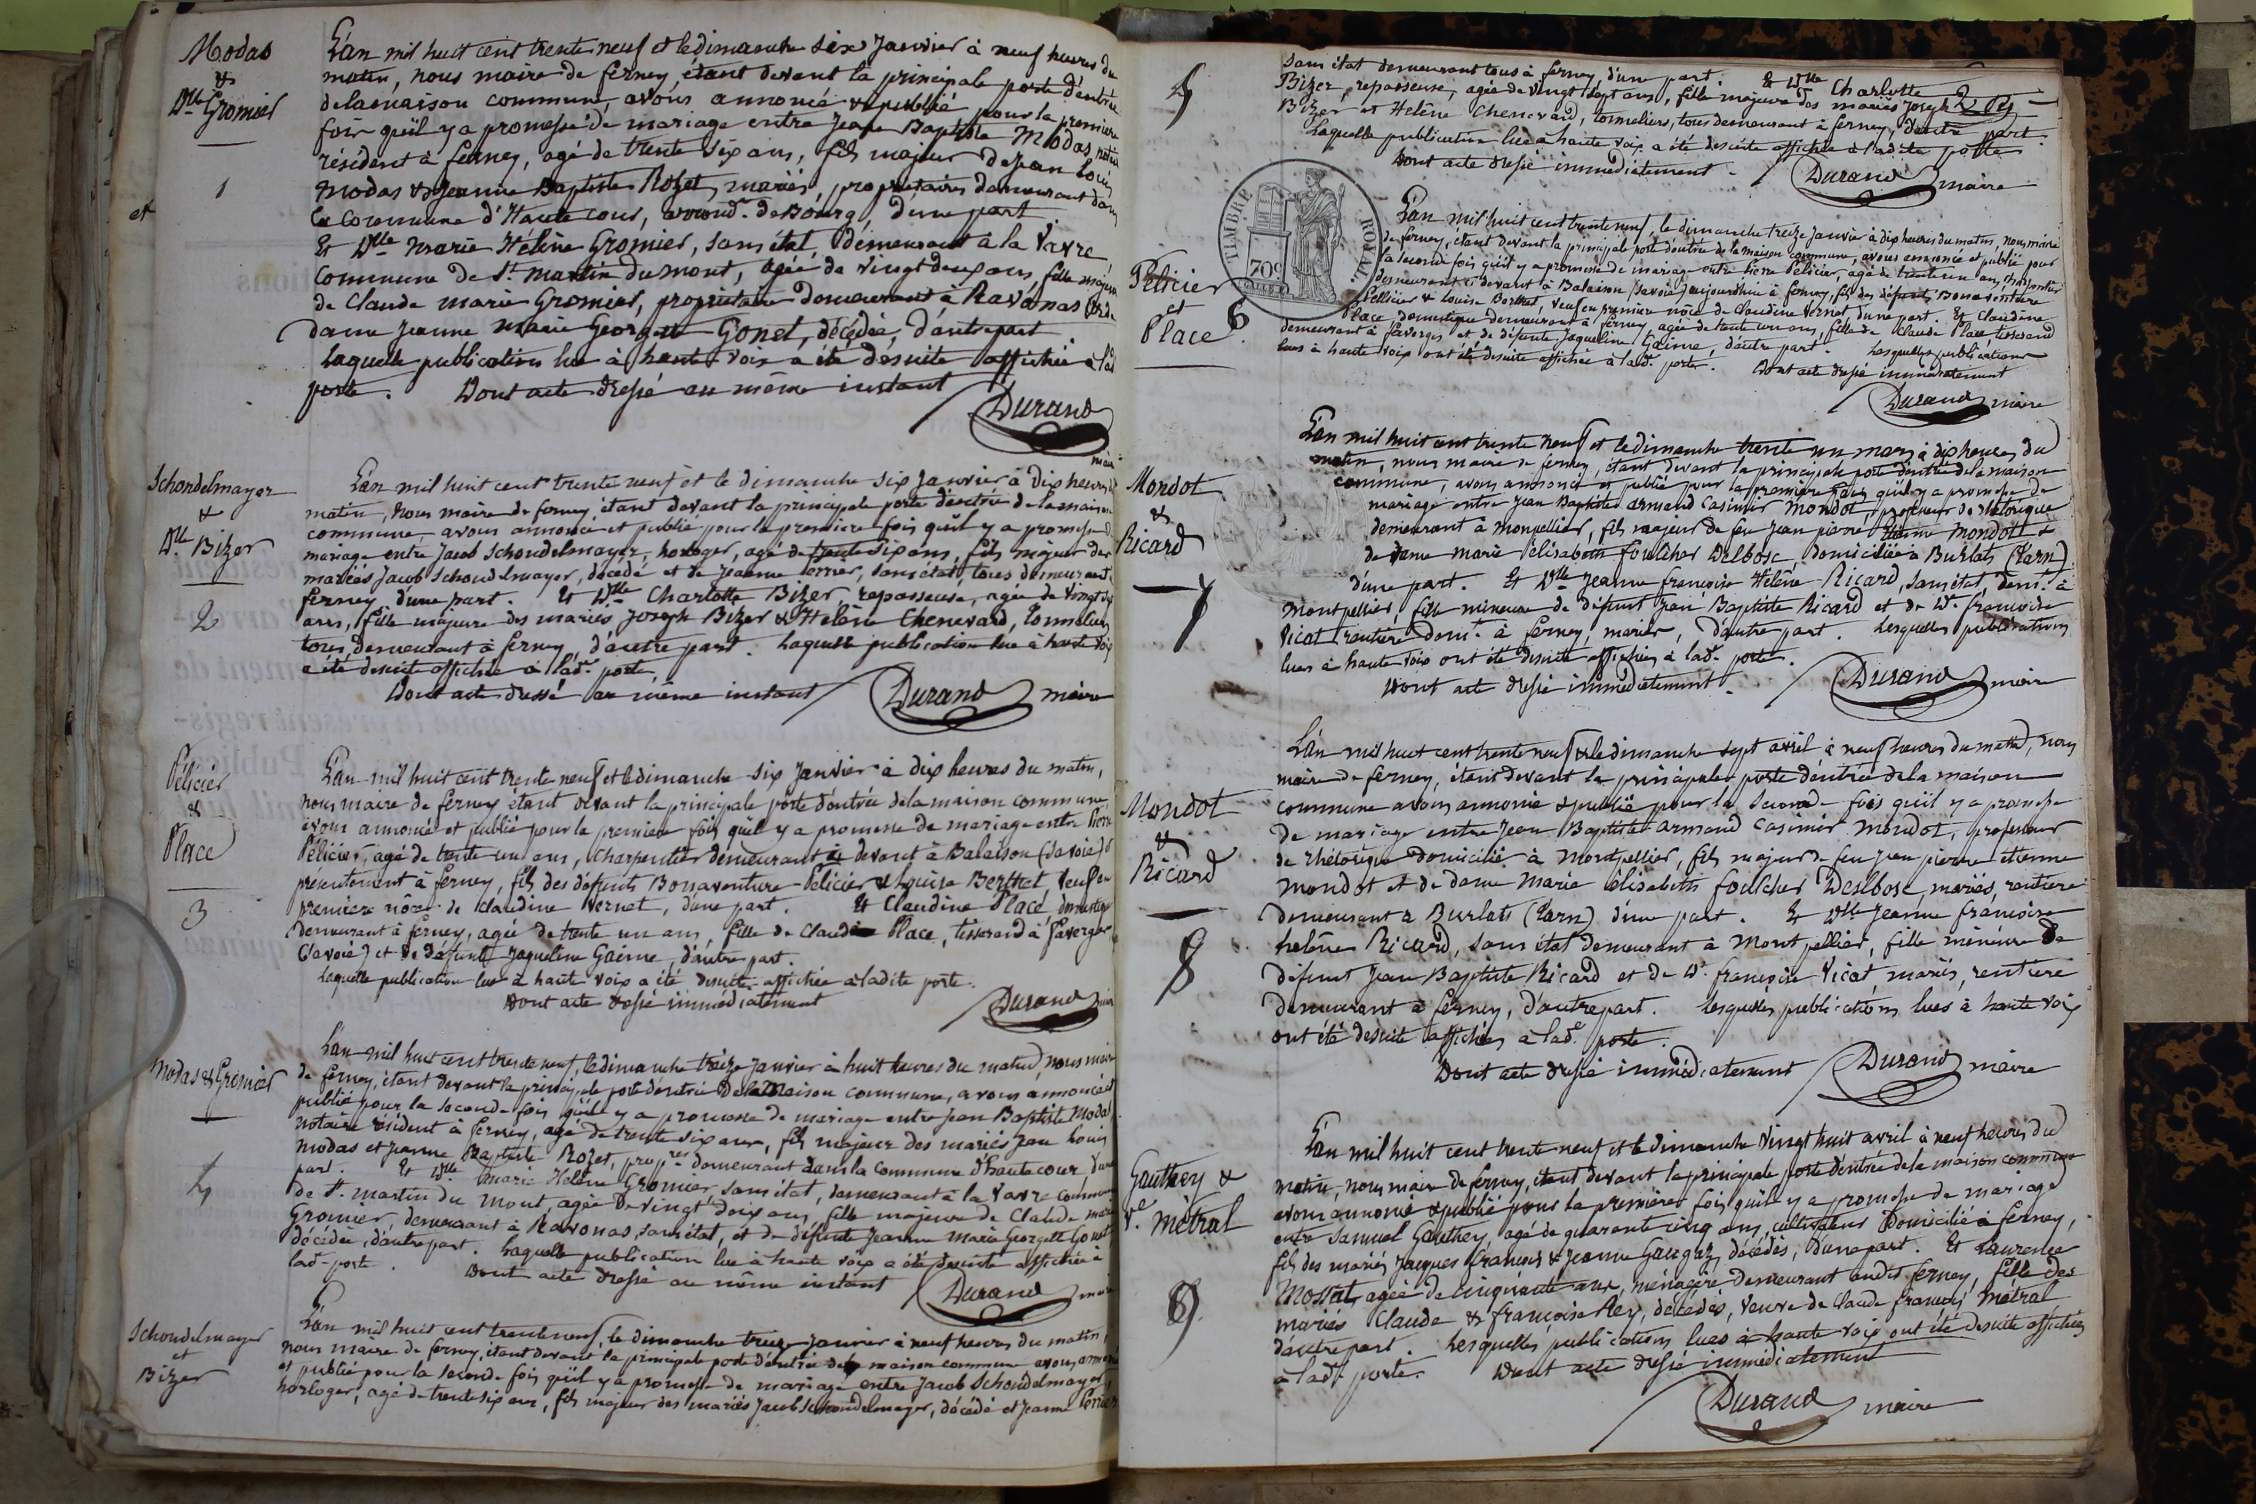 Modas
&
Dlle Gromier
1
et
L'an mil huit cent trente neuf et le dimanche six Janvier à neuf heures du
matin, nous maire de ferney, étant devant la principale porte d'entrée
de la maison commune, avons annoncé & publié pour la premiere
fois qu'il y a promesse de mariage entre Jean Baptiste Modas,
résident à ferney, agé de trente six ans, fils majeur de Jean Louis
Modas & Jeanne Baptiste Rozet, mariés, propriétaires demeurant dans
la commune d'Hautecour, arrond. de Bourg, d'une part
Et Dlle Marie Hélène Gromier, sans état, demeurant à la Vavre,
commune de St. Martin du mont, agée de vingt deux ans, fille majeure
de Claude marie Gromier, propriétaire demeurant à Ravonas & de
dame Jeanne Marie Georgette Gonet, décédée, d'autre part
Laquelle publication lue à haute voix a été desuite affichée à lad.
porte. Dont acte dressé au même instant
Durand
maire
Schondelmayer
&
Dlle Bizer
2
L'an mil huit cent trente neuf et le dimanche six Janvier à dix heures du
matin, nous maire de ferney étant devant la principale porte d'entrée de la maison
commune, avons annoncé et publié pour la premiere fois qu'il y a promesse de
mariage entre Jacob Schondelmayer, horloger, agé de trente six ans, fils majeur des
mariés Jacob Schondelmayer, décédé et de Jeanne Perrier, sans état, tous demeurant à
ferney d'une part. Et Dlle Charlotte Bizer, repasseuse, agée de vingt sept
ans, fille majeure des mariés Joseph Bizer & Hélène Chenevard, tonneliers
tous demeurant à ferney, d'autre part. Laquelle publication lue à haute voix
a été desuite affichée à lad. porte,
Dont acte dressé au même instant Durand maire
Pélicier
&
Place
3
L'an mil huit cent trente neuf et le dimanche six Janvier à dix heures du matin,
nous maire de ferney étant devant la principale porte d'entrée de la maison commune,
avons annoncé et publié pour la premiere fois qu'il y a promesse de mariage entre Pierre
Pélicier, agé de trente un ans, charpentier demeurant ci devant à Balaison (Savoie) &
présentement à ferney, fils des défunts Bonaventure Pelicier & Louise Berthet, veuf en
premiere nôce de Claudine Vernet, d'une part. Et Claudine Place, domestique
demeurant à ferney, agée de trente un ans, fille de Claude Place, tisserand à faverges
(Savoie) et de défunte Jaqueline Gaime, d'autre part.
Laquelle publication lue à haute voix a été desuite affichée à ladite porte.
Dont acte dressé immédiatement Durand
Modas & Gromier
4
L'an mil huit cent trente neuf, le dimanche treize Janvier à huit heures du matin, nous maire
de ferney, étant devant la principale porte d'entrée de la maison commune, avons annoncé et
publié pour la seconde fois qu'il y a promesse de mariage entre Jean Baptiste Modas
notaire résident à ferney, agé de trente six ans, fils majeur des mariés Jean Louis
Modas et Jeanne Baptiste Rozet, propres demeurant dans la commune d'hautecour d'une
part. Et Dlle Marie Hélène Gromier, sans état, demeurant à la Vavre commune
de St. martin du mont, agée de vingt deux ans, fille majeure de Claude marie
Gromier, demeurant à Ravonas, sans état, et de défunte Jeanne Marie Georgette Gonet
décédée, d'autre part. Laquelle publication lue à haute voix a été desuite affichée à
lad. porte. Dont acte dressé au même instant Durand
Schondelmayer
et
Bizer
L'an mil huit cent trente neuf, le dimanche treize Janvier à neuf heures du matin,
nous maire de ferney, étant devant la principale porte d'entrée de la maison commune avons annoncé
et publié pour la seconde fois qu'il y a promesse de mariage entre Jacob Schondelmayer,
horloger, agé de trente six ans, fils majeur des mariés Jacob Schondelmayer, décédé et Jeanne Perrier
5
sans état demeurant tous à ferney, d'une part. Et Dlle Charlotte
Bizer, repasseuse, agée de vingt sept ans, fille majeure des mariés Joseph
Bizer et Helène Chenevard, tonneliers, tous demeurant à ferney, d'autre part.
Laquelle publication lue à haute voix a été desuite affichée à ladite porte
Dont acte dressé immédiatement. Durand maire
TIMBRE ROYAL
70c
Pelicier
et
Place
6
L'an mil huit cent trente neuf, le dimanche treize Janvier à dix heures du matin, nous maire
de ferney, étant devant la principale porte d'entrée de la maison commune, avons annoncé et publié pour
la seconde fois qu'il y a promesse de mariage entre Pierre Pélicier, agé de trente un ans, charpentier
demeurant ci devant à Balaison (Savoie) aujourd'hui à ferney, fils des défunts Bonaventure
Pellicier & Louise Berthet, veuf en premiere nôce de Claudine Vernet d'une part. Et Claudine
Place domestique demeurant à ferney, agée de trente un ans, fille de Claude Place, tisserand
demeurant à faverges et de défunte Jaqueline Gaime, d'autre part. Lesquelles publications
lues à haute voix ont été desuite affichée à lad. porte. Dont acte dressé immédiatement
Durand maire
Mondot
&
Ricard
7
L'an mil huit cent trente neuf et le dimanche trente un mars à dix heures du
matin, nous maire de ferney, étant devant la principale porte d'entrée de la maison
commune, avons annoncé et publié pour la premiere fois qu'il y a promesse de
mariage entre Jean Baptiste armand Casimir Mondot, professeur de rhétorique
demeurant à Montpellier, fils majeur de feu Jean pierre Etienne Mondot &
de dame Marie élisabeth foulcher Delbosc, domiciliée à Burlats (Tarn)
d'une part. Et Dlle Jeanne françoise Hélène Ricard, sans état, dem. à
Montpellier, fille mineure de défunt Jean Baptiste Ricard et de De. françoise
Vicat rentiere demt. à ferney, mariés, d'autre part. Lesquelles publications
lues à haute voix ont été desuite affichées à lad. porte.
Dont acte dressé immédiatement. Durand maire
Mondot
&
Ricard
8
L'an mil huit cent trente neuf & le dimanche sept avril à neuf heures du matin, nous
maire de ferney, étant devant la principale porte d'entrée de la maison
commune avons annoncé & publié pour la seconde fois qu'il y a promesse
de mariage entre Jean Baptiste armand Casimir Mondot, professeur
de rhétorique domicilié à Montpellier, fils majeur de feu Jean pierre etienne
Mondot et de dame Marie élisabeth foulcher Deslbosc, mariés, rentiere
demeurant à Burlats (Tarn) d'une part. Et Dlle Jeanne françoise
helène Ricard, sans état demeurant à Montpellier, fille mineure de
defunt Jean Baptiste Ricard et de De. françoise Vicat, mariés, rentiere
demeurant à ferney, d'autre part. Lesquelles publications lues à haute voix
ont été desuite affichées à lad. porte.
Dont acte dressé immédiatement Durand maire
Gauthey &
Ve. Métral
9
L'an mil huit cent trente neuf et le dimanche vingt huit avril à neuf heures du
matin, nous maire de ferney, étant devant la principale porte d'entrée de la maison commune
avons annoncé & publié pour la premiere fois qu'il y a promesse de mariage
entre Samuel Gauthey, agé de quarante cinq ans, cultivateur domicilié à ferney,
fils des mariés Jacques françois & Jeanne Gaugaz, décédés, d'une part. Et Laurence
Mossat, agée de cinquante ans, ménagère demeurant audit ferney, fille des
mariés Claude & françoise Rey, décédés, veuve de Claude françois Métral
d'autre part. Lesquelles publications lues à haute voix ont été desuite affichées
à lad. porte. Dont acte dressé immédiatement
Durand maire